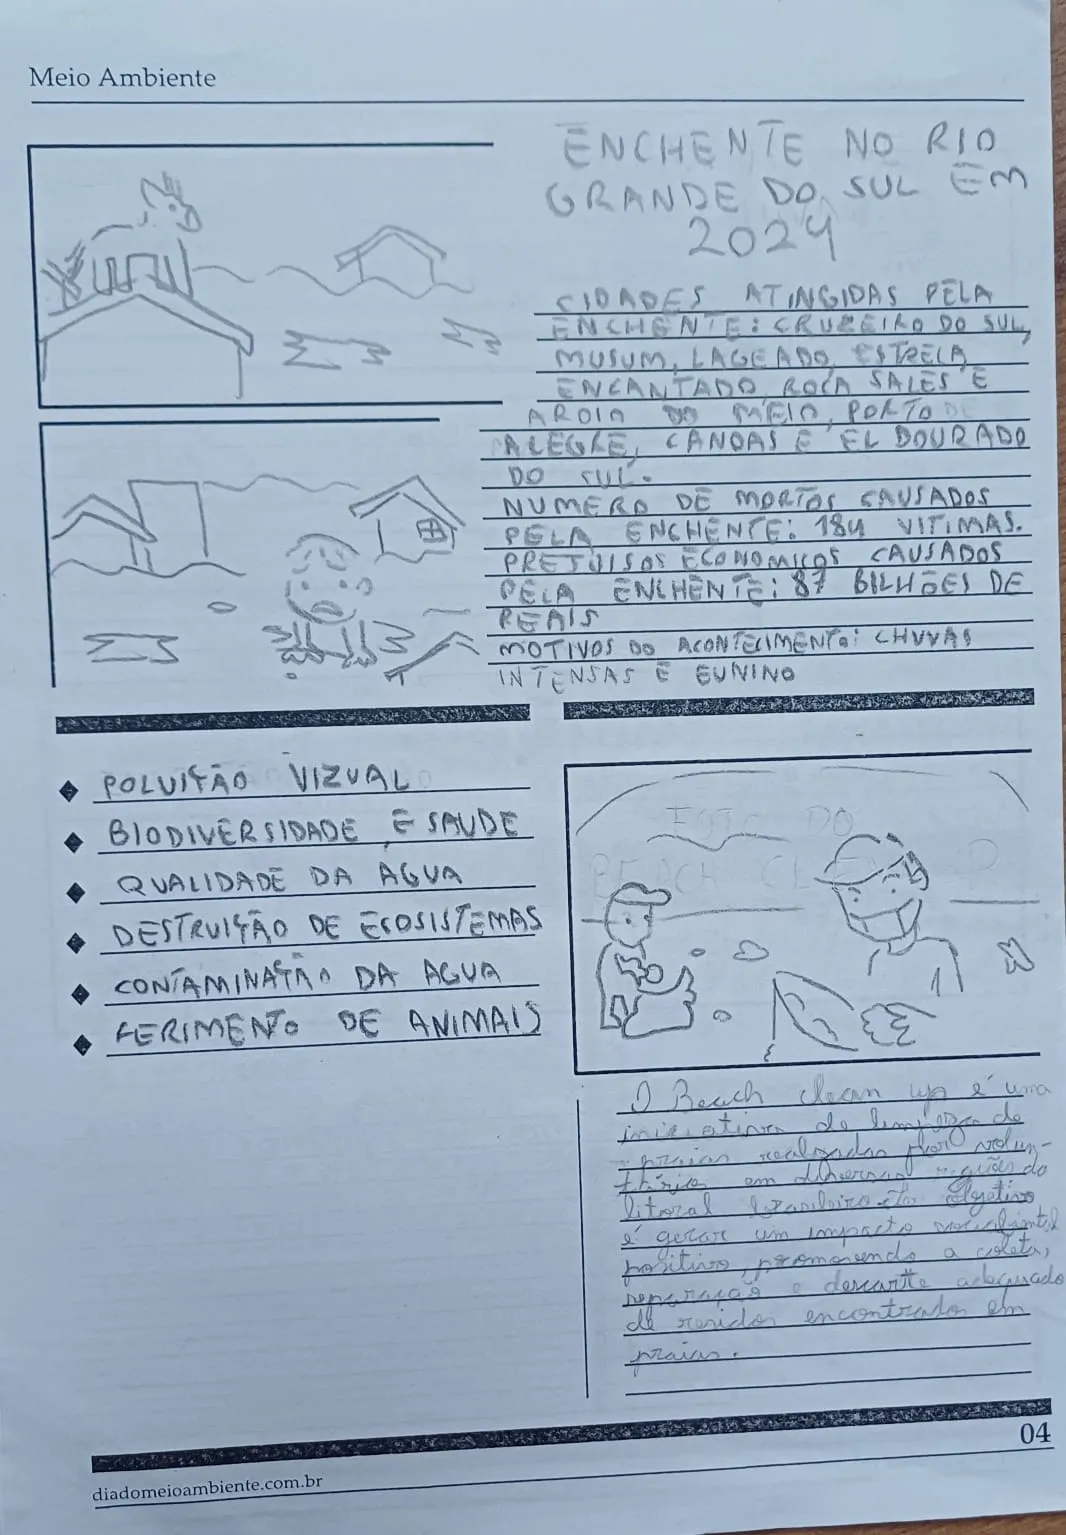 Meio Ambiente
ENCHENTE NO RIO
GRANDE DO SUL EM
2024
CIDADES ATINGIDAS PELA
ENCHENTE: CRUZEIRO DO SUL,
MUSUM, LAGEADO, ESTRELA,
ENCANTADO, ROCA SALES E
AROIO DO MEIO, PORTO DE
ALEGRE, CANOAS E EL DOURADO
DO SUL.
NUMERO DE MORTOS CAUSADOS
PELA ENCHENTE: 184 VITIMAS.
PREJUISOS ECONOMICOS CAUSADOS
PELA ENCHENTE: 87 BILHÕES DE
REAIS
MOTIVOS DO ACONTECIMENTO: CHUVAS
INTENSAS E EUNINO
POLUIÇÃO VIZUAL
BIODIVERSIDADE E SAUDE
QUALIDADE DA AGUA
DESTRUIÇÃO DE ECOSISTEMAS
CONTAMINAÇÃO DA AGUA
FERIMENTO DE ANIMAIS
FOTO DO
BEACH CLEAN UP
O Beach clean up é uma
iniciativa de limpeza de
praias realizadas por volun-
tários em diversas regiões do
litoral brasileiro. Objetivo
é gerar um impacto
positivo, promovendo a coleta,
separação e descarte adequado
de residos encontrados em
praias.
04
diadomeioambiente.com.br